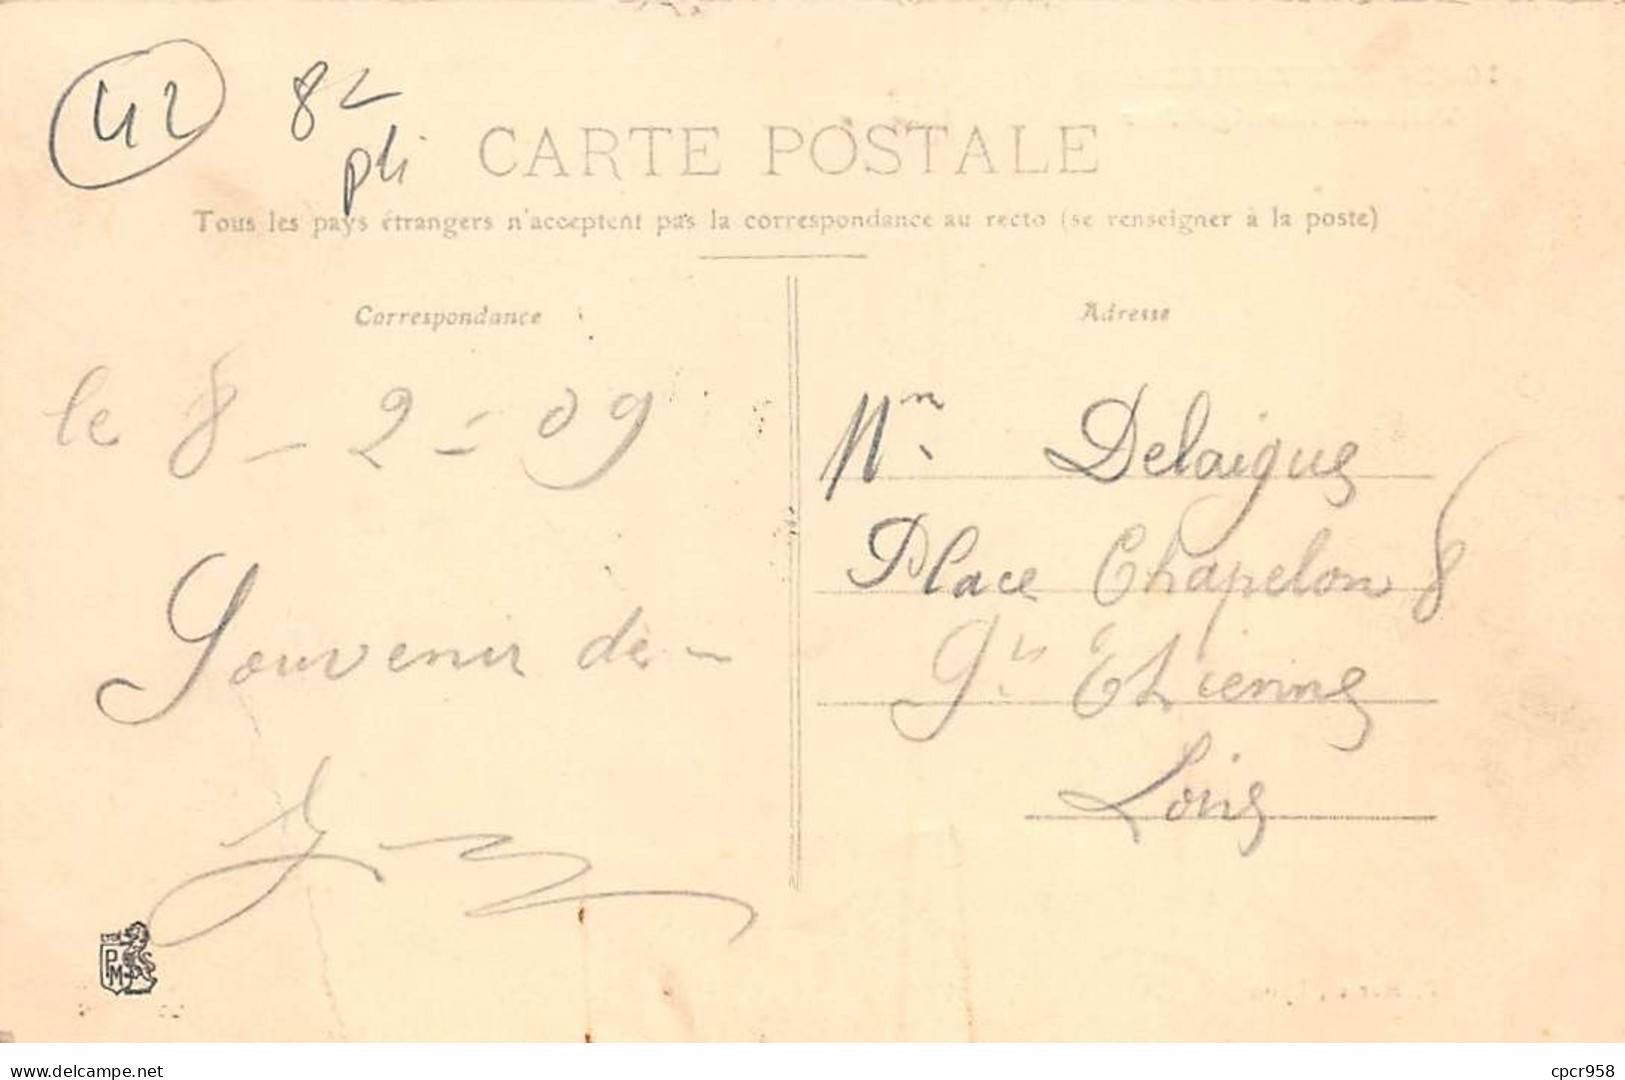 42
82
pli
CARTE POSTALE
Tous les pays étrangers n'acceptent pas la correspondance au recto (se renseigner à la poste)
Correspondance
le 8 - 2 - 09
Souvenir de -
Adresse
Mm Delaigue
Place Chapelon 8
St Etienne
Loire
LYON
PM
delcampe.net
cpcr958